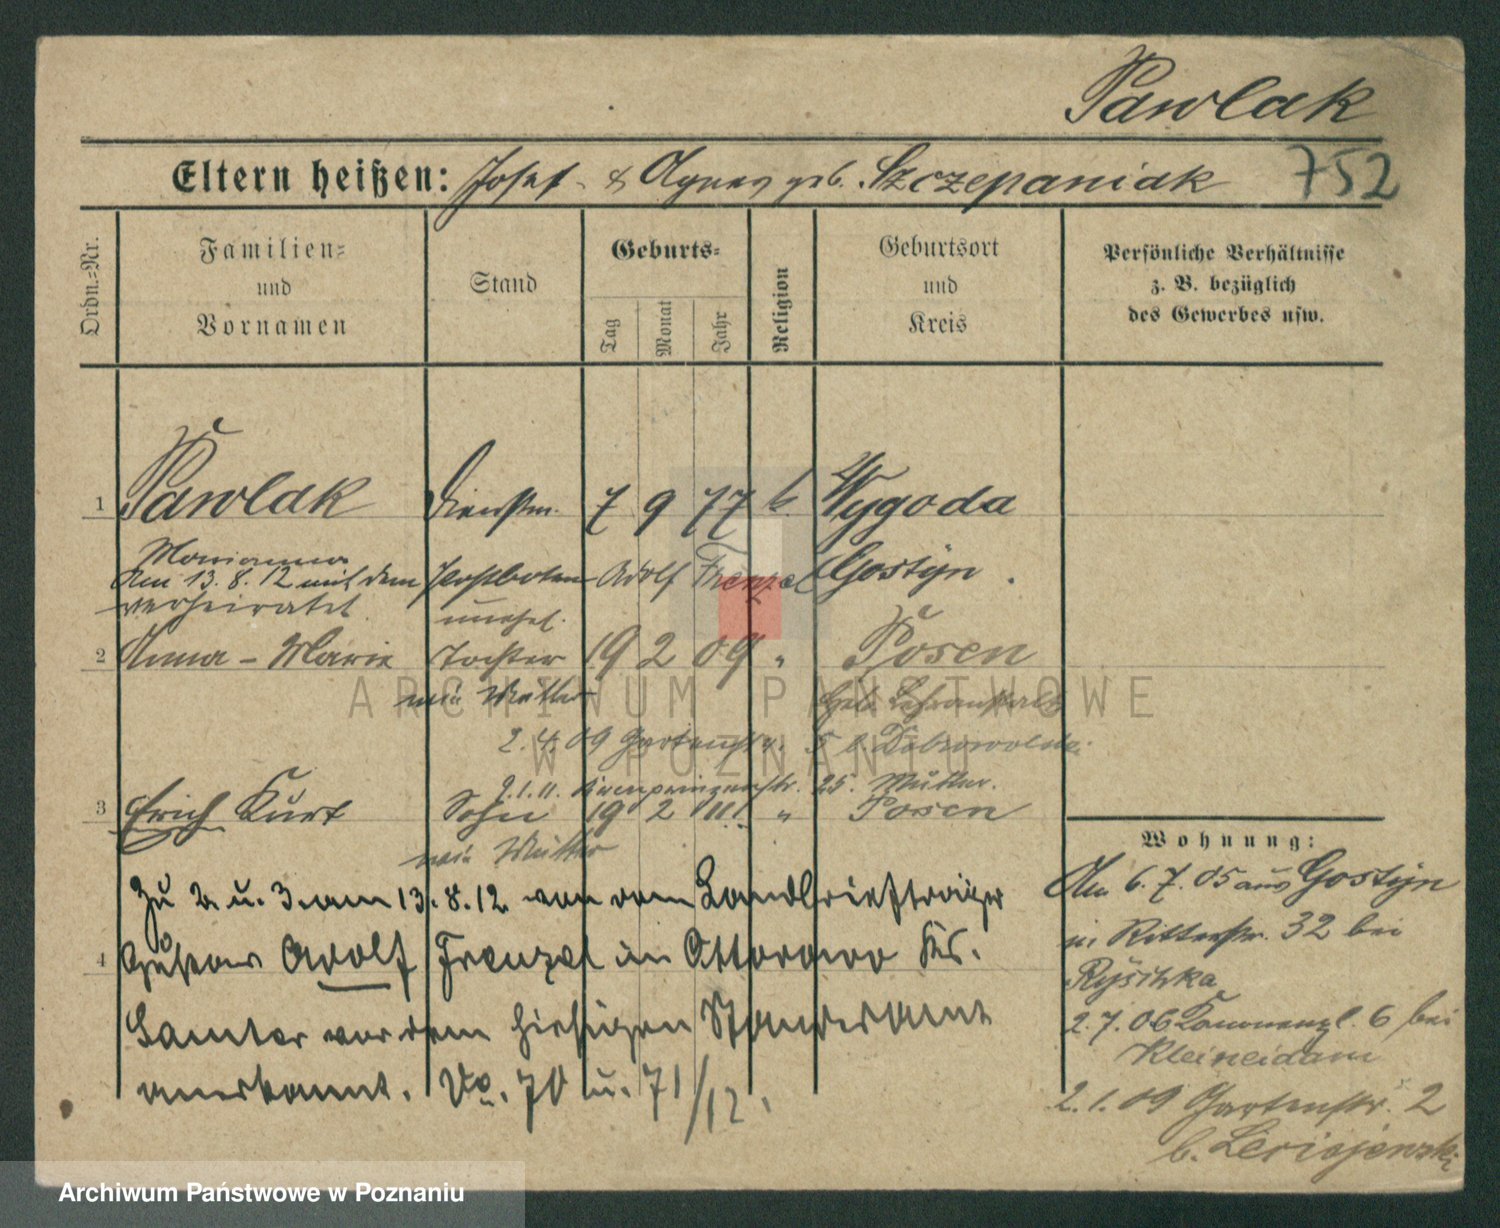 Pawlak
Eltern heißen: Josef & Agnes geb. Szczepaniak 752
Ordn.=Nr.
Familien=
und
Vornamen
Stand
Geburts=
Tag
Monat
Jahr
Religion
Geburtsort
und
Kreis
Persönliche Verhältnisse
z. B. bezüglich
des Gewerbes usw.
1 Pawlak Dienstm. 7 9 77 k. Wygoda
Marianna
Am 13.8.12 mit dem Postboten Adolf Frenzel Gostyn.
verheiratet
unehel.
2 Anna-Marie Tochter 19 2 09 " Posen
wie Mutter
2.4.09 Gartenstr. 5 b.
2.1.11. Kronprinzenstr. 25. Mutter.
3 Erich Kurt Sohn 19 2 111 " Posen
wie Mutter
Zu 2 u. 3 am 13.8.12 von dem Landbriefträger
4 Gustav Adolf Frenzel in Ottorowo Krs.
Samter vor dem hiesigen Standesamt
anerkannt. No. 70 u. 71/12.
Wohnung:
Am 6.7.05 aus Gostyn
in Ritterstr. 32 bei
2.7.06 6 bei
Kleineidam
2.1.09 Gartenstr. 2
b.
ARCHIWUM PAŃSTWOWE
W POZNANIU
Archiwum Państwowe w Poznaniu